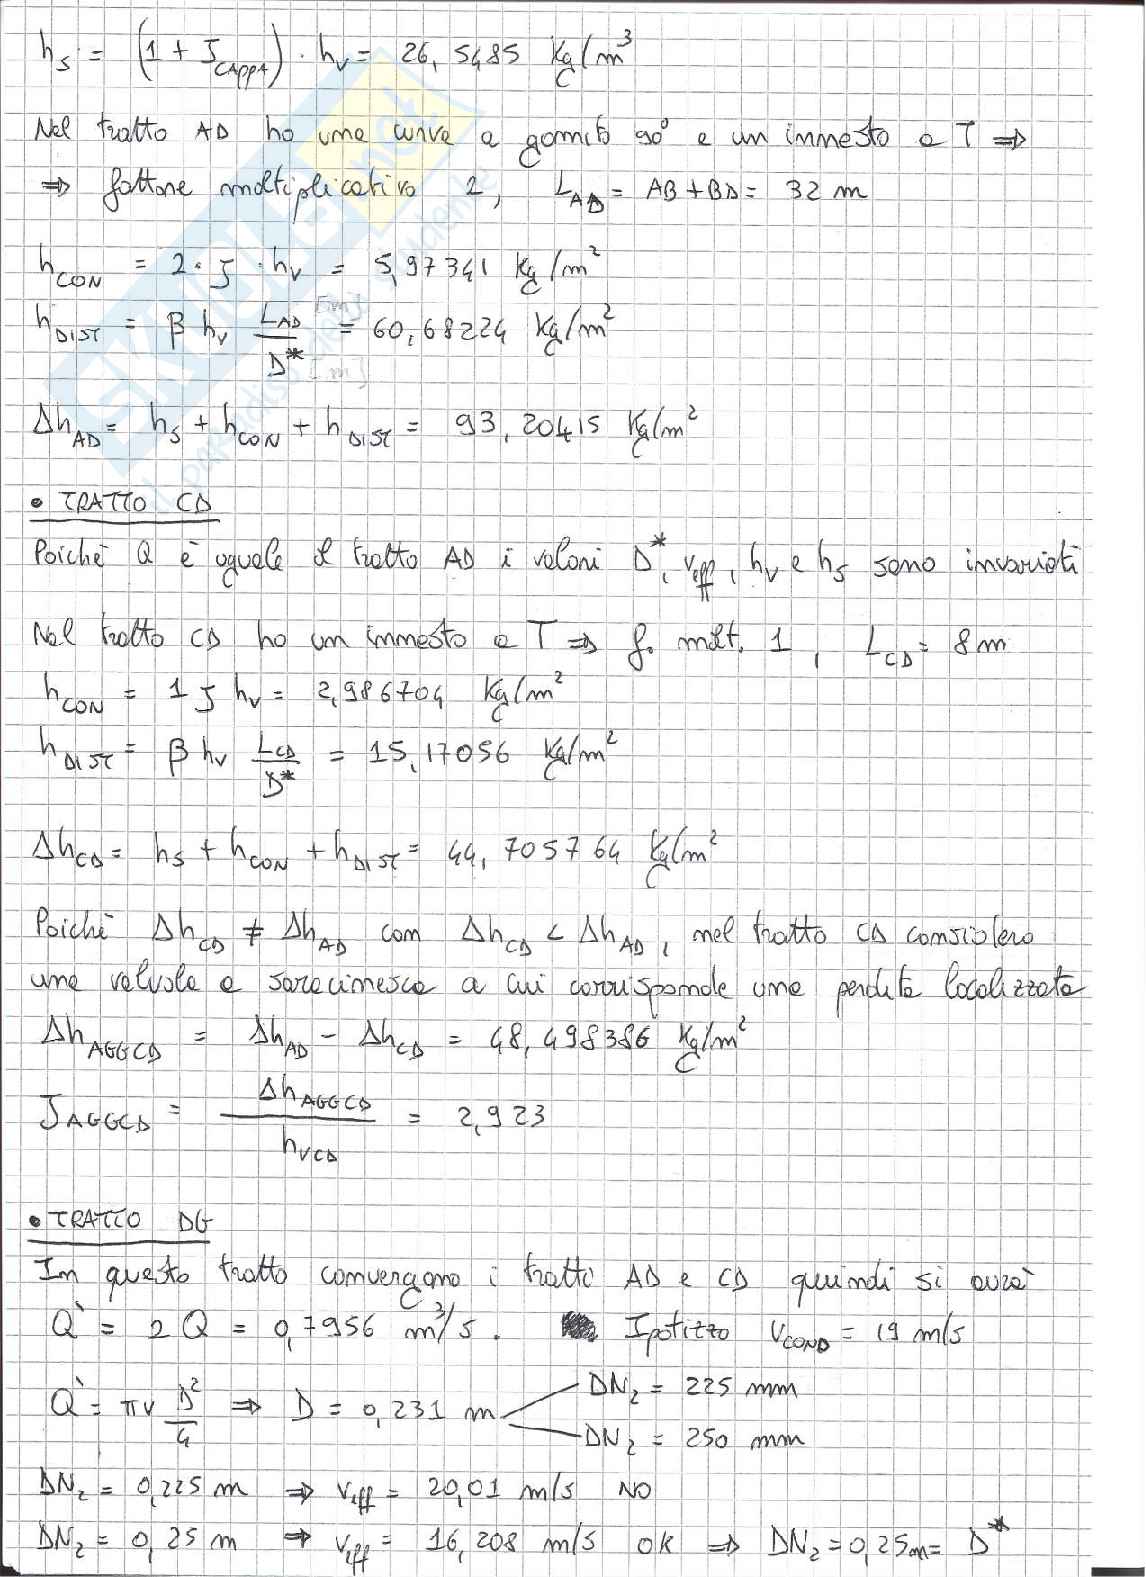 h_S = (1 + ζ_CAPPA) · h_V = 26,5485 Kg/m³
Nel tratto AD ho una curva a gomito 90° e un innesto a T ⇒
⇒ fattore moltiplicativo 2, L_AD = AB + BD = 32 m
h_CON = 2 · ζ · h_V = 5,97341 Kg/m²
h_DIST = β h_V L_AD [m] / D* [m] = 60,68224 Kg/m²
Δh_AD = h_S + h_CON + h_DIST = 93,20415 Kg/m²
• TRATTO CD
Poichè Q è uguale al tratto AD i valori D*, v_eff, h_V e h_S sono invariati
Nel tratto CD ho un innesto a T ⇒ f. molt. 1, L_CD = 8 m
h_CON = 1 ζ h_V = 2,986704 Kg/m²
h_DIST = β h_V L_CD / D* = 15,17056 Kg/m²
Δh_CD = h_S + h_CON + h_DIST = 44,705764 Kg/m²
Poichè Δh_CD ≠ Δh_AD con Δh_CD < Δh_AD, nel tratto CD considero
una valvola a saracinesca a cui corrisponde una perdita localizzata
Δh_AGGCD = Δh_AD - Δh_CD = 48,498386 Kg/m²
ζ_AGGCD = Δh_AGGCD / h_VCD = 2,923
• TRATTO DG
In questo tratto convergono i tratti AD e CD quindi si avrà
Q' = 2Q = 0,7956 m³/s. Ipotizzo v_COND = 19 m/s
Q' = πv D²/4 ⇒ D = 0,231 m DN₂ = 225 mm
DN₂ = 250 mm
DN₂ = 0,225 m ⇒ v_eff = 20,01 m/s NO
DN₂ = 0,25 m ⇒ v_eff = 16,208 m/s OK ⇒ DN₂ = 0,25 m = D*